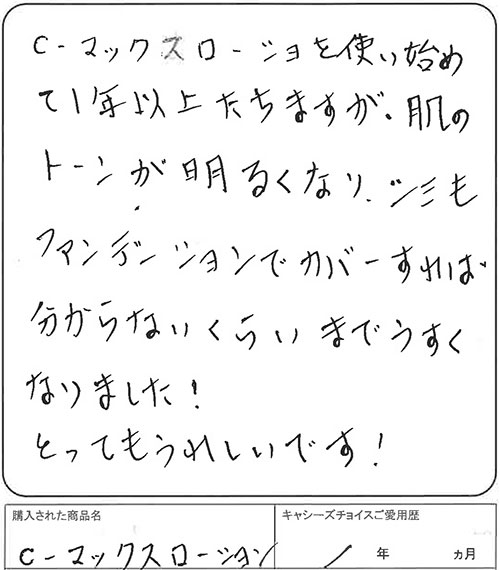 C-マックスローショを使い始め
て1年以上たちますが、肌の
トーンが明るくなり、シミも
ファンデーションでカバーすれば
分からないくらいまでうすく
なりました!
とってもうれしいです!
購入された商品名 キャシーズチョイスご愛用歴
C-マックスローション 1年 ヵ月